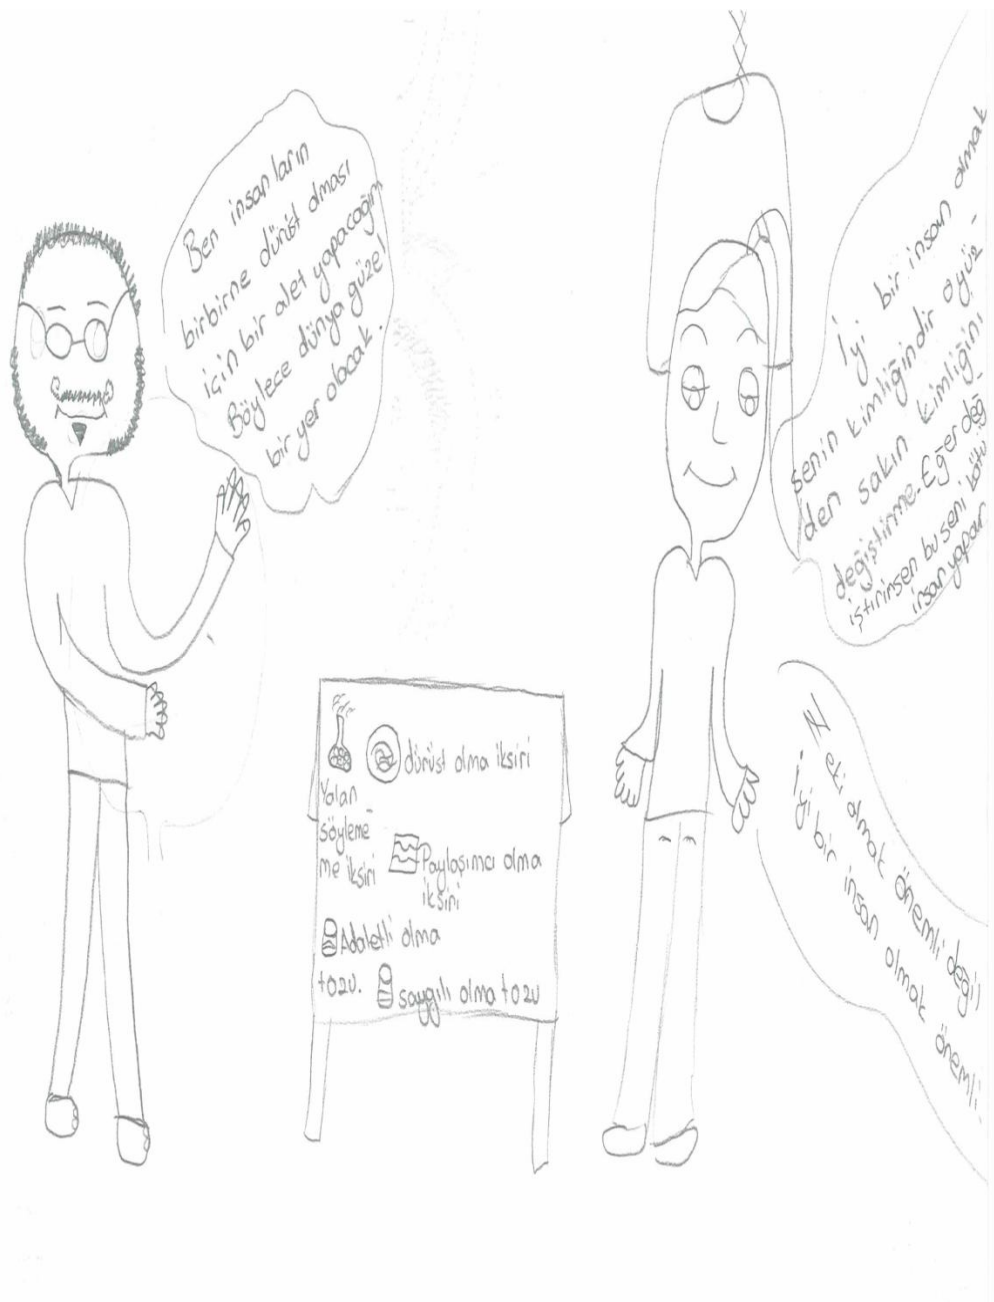 Ben insanların
birbirne dürüst olması
için bir alet yapacağım
Böylece dünya güzel
bir yer olacak.
İyi bir insan olmak
senin kimliğindir öyüz-
den sakın kimliğini
değiştirme. Eğer değ-
iştirirsen bu seni kötü
insan yapar
Zeki olmak önemli değil
iyi bir insan olmak önemli.
dürüst olma iksiri
Yalan
söyleme-
me iksiri
Paylaşımcı olma
iksiri
Adaletli olma
tozu.
saygılı olma tozu